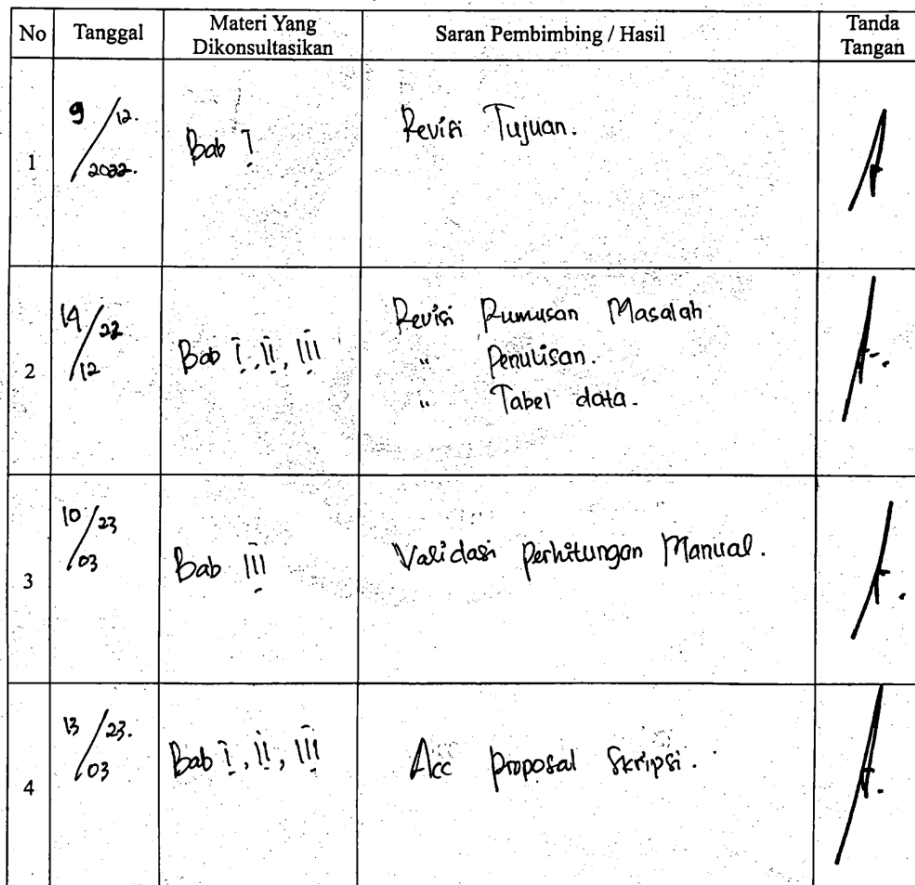 No Tanggal Materi Yang Dikonsultasikan Saran Pembimbing / Hasil Tanda Tangan
1 9/12. 2022. Bab I Revisi Tujuan.
2 14/22 12 Bab I, II, III Revisi Rumusan Masalah
" Penulisan.
" Tabel data.
3 10/23 03 Bab III Validasi perhitungan Manual.
4 13/23. 03 Bab I, II, III Acc proposal Skripsi.